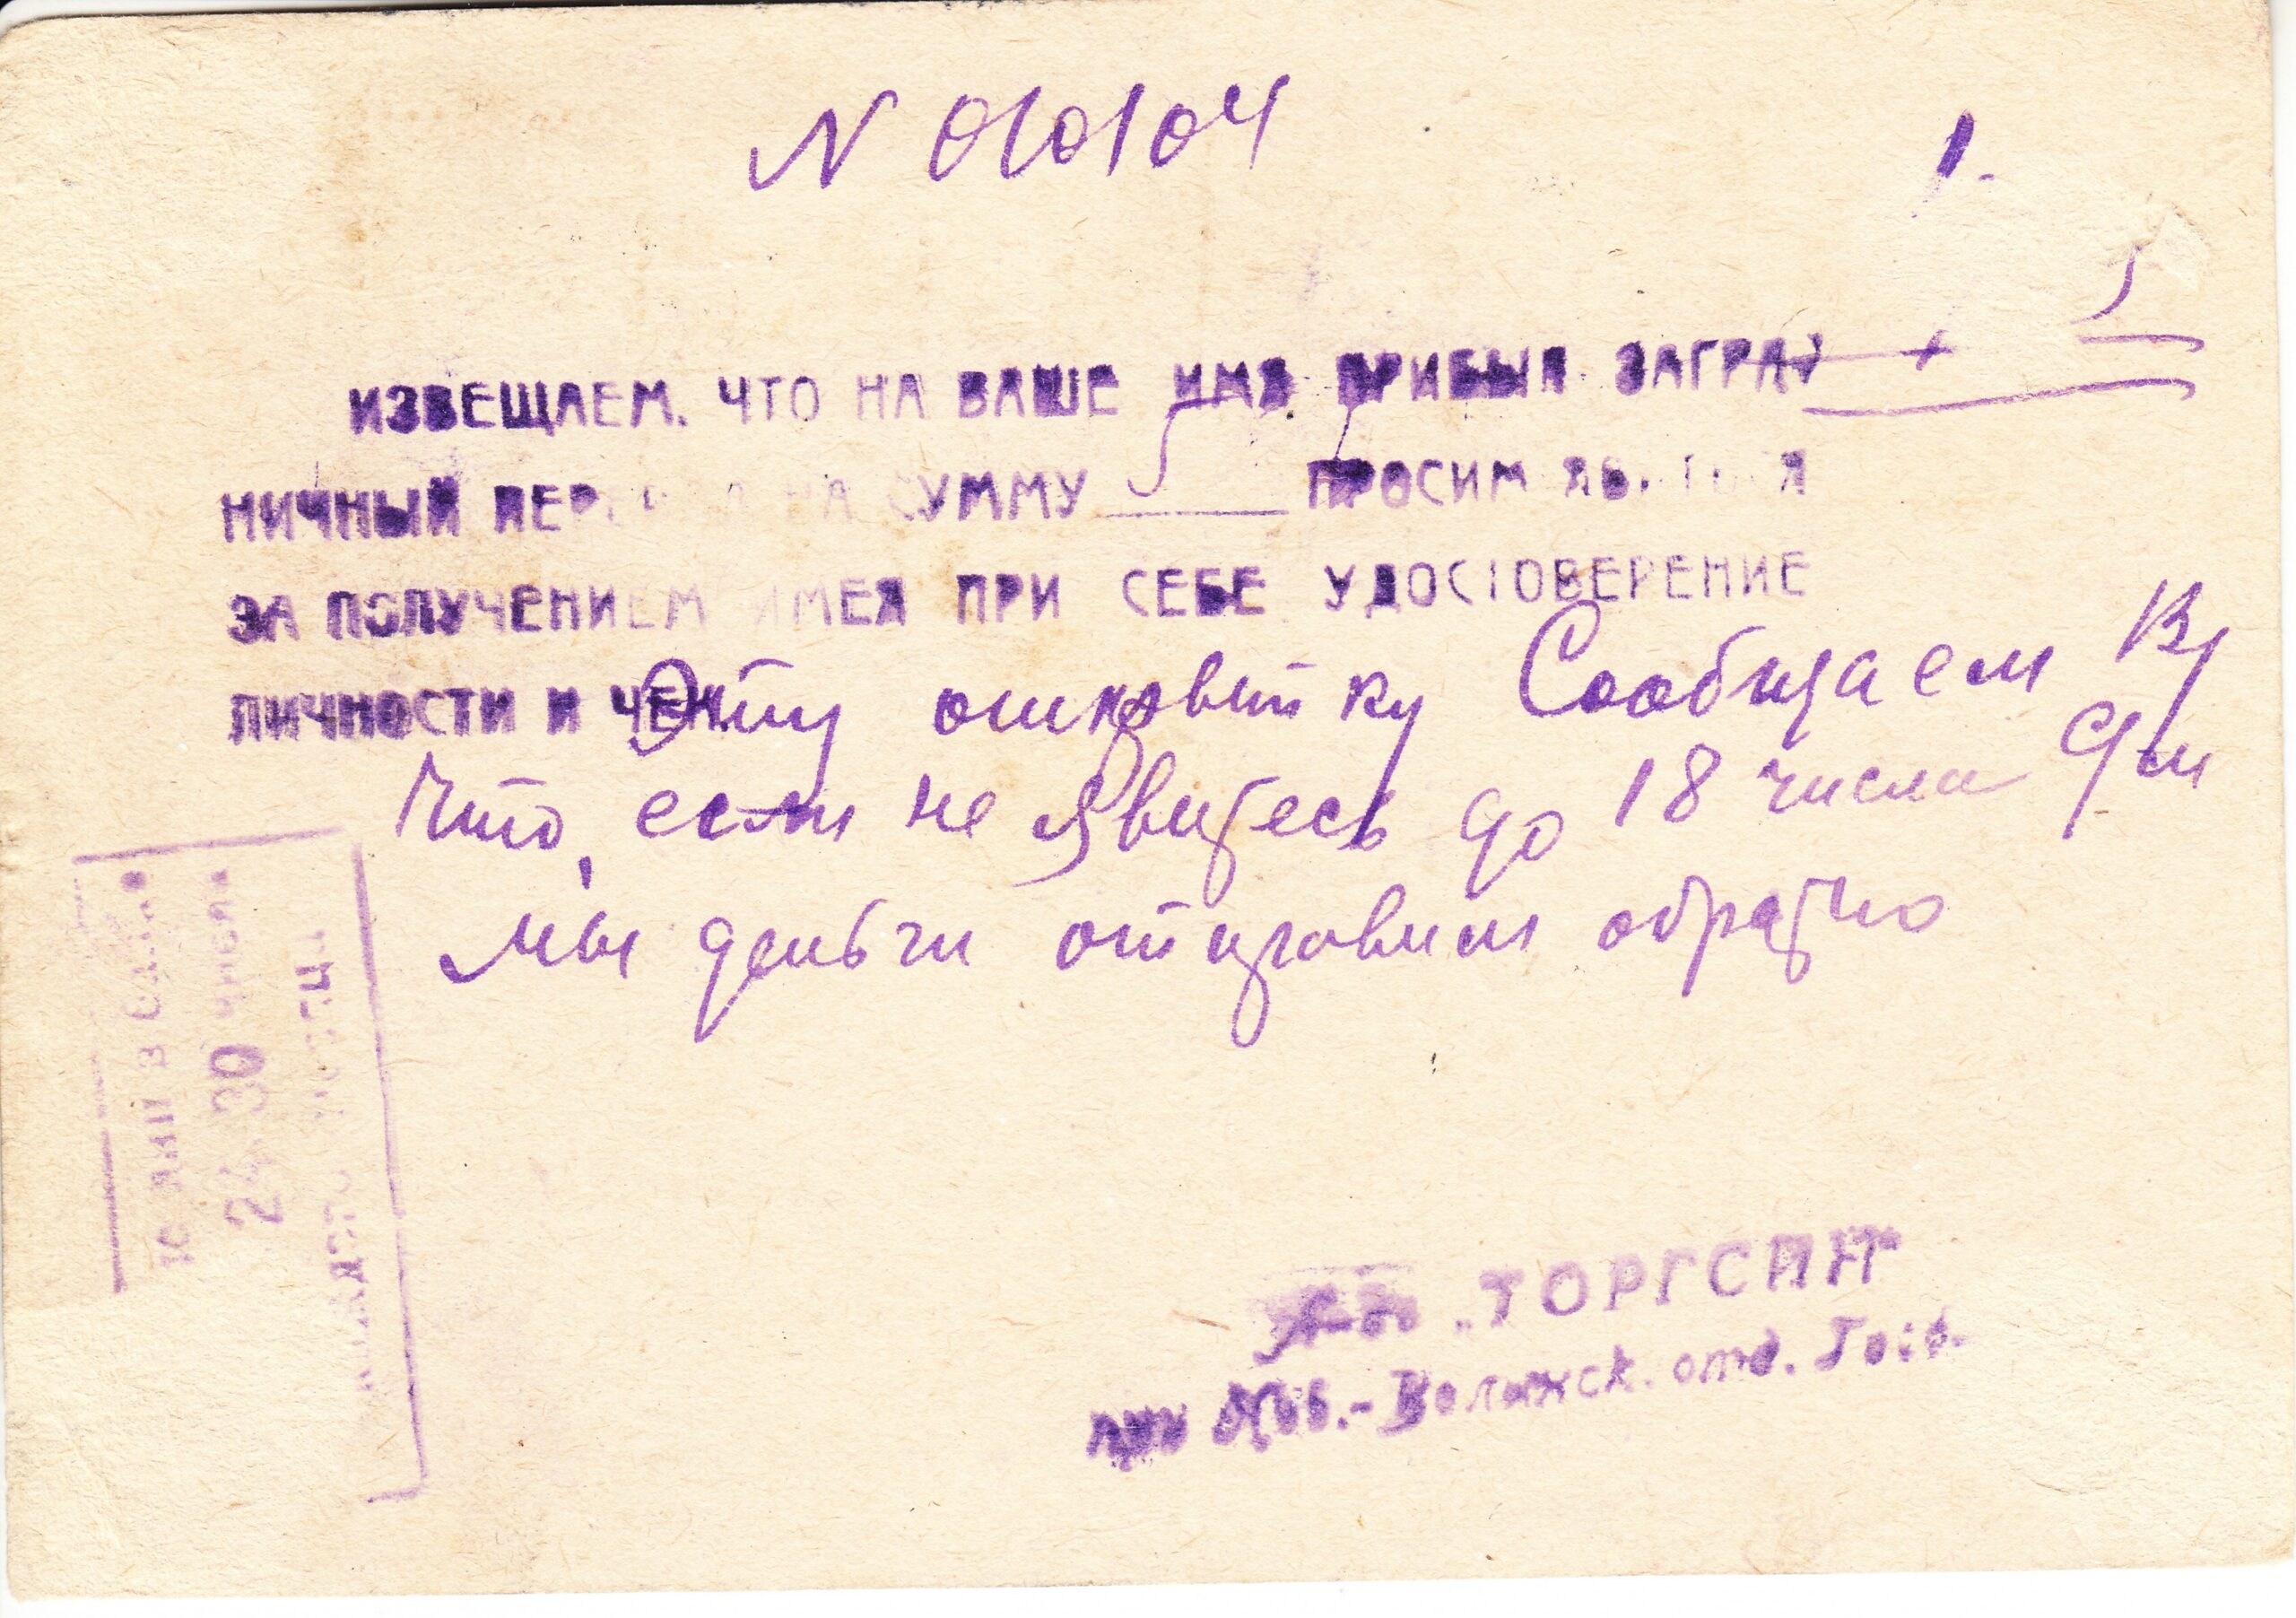 N 010104
1.
ИЗВЕЩАЕМ. ЧТО НА ВАШЕ ИМЯ ПРИБЫЛ ЗАГРА
НИЧНЫЙ НА СУММУ ПРОСИМ
ЗА ПОЛУЧЕНИЕМ ИМЕЯ ПРИ СЕБЕ УДОСТОВЕРЕНИЕ
ЛИЧНОСТИ И Эту открытку Сообщаем
что, если не явитесь до 18 числа
мы деньги отправим обратно
24 30 числа
"ТОРГСИН"
при Нов.-Волынск. отд. Госб.